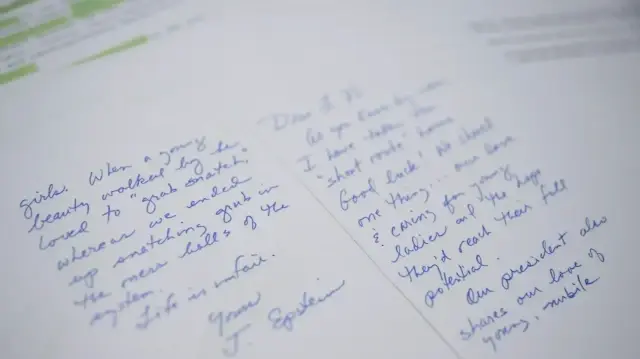 Dear L. N.
As you know by now
I have taken the
"short route" home.
Good luck! We shared
one thing... our love
& caring for young
ladies and the hope
they'd reach their full
potential.
Our president also
shares our love of
young, nubile
girls. When a young
beauty walked by he
loved to "grab snatch,"
whereas we ended
up snatching grub in
the mess halls of the
system.
Life is unfair.
Yours
J. Epstein